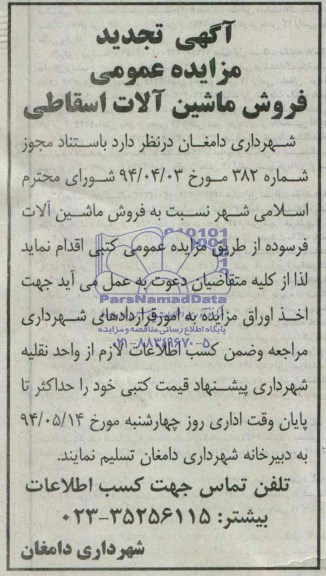 آگهی تجدید
مزایده عمومی
فروش ماشین آلات اسقاطی
شهرداری دامغان درنظر دارد باستناد مجوز
شماره ۳۸۲ مورخ ۹۴/۰۴/۰۳ شورای محترم
اسلامی شهر نسبت به فروش ماشین آلات
فرسوده از طریق مزایده عمومی کتبی اقدام نماید
لذا از کلیه متقاضیان دعوت به عمل می آید جهت
ParsNamadData
اخذ اوراق مزایده به امورقراردادهای شهرداری
پایگاه اطلاع رسانی مناقصه و مزایده
مراجعه وضمن کسب اطلاعات لازم از واحد نقلیه
۰۲۱-۸۸۳۴۹۶۷۰-۵
شهرداری پیشنهاد قیمت کتبی خود را حداکثر تا
پایان وقت اداری روز چهارشنبه مورخ ۹۴/۰۵/۱۴
به دبیرخانه شهرداری دامغان تسلیم نمایند.
تلفن تماس جهت کسب اطلاعات
بیشتر: ۳۵۲۵۶۱۱۵-۰۲۳
شهرداری دامغان